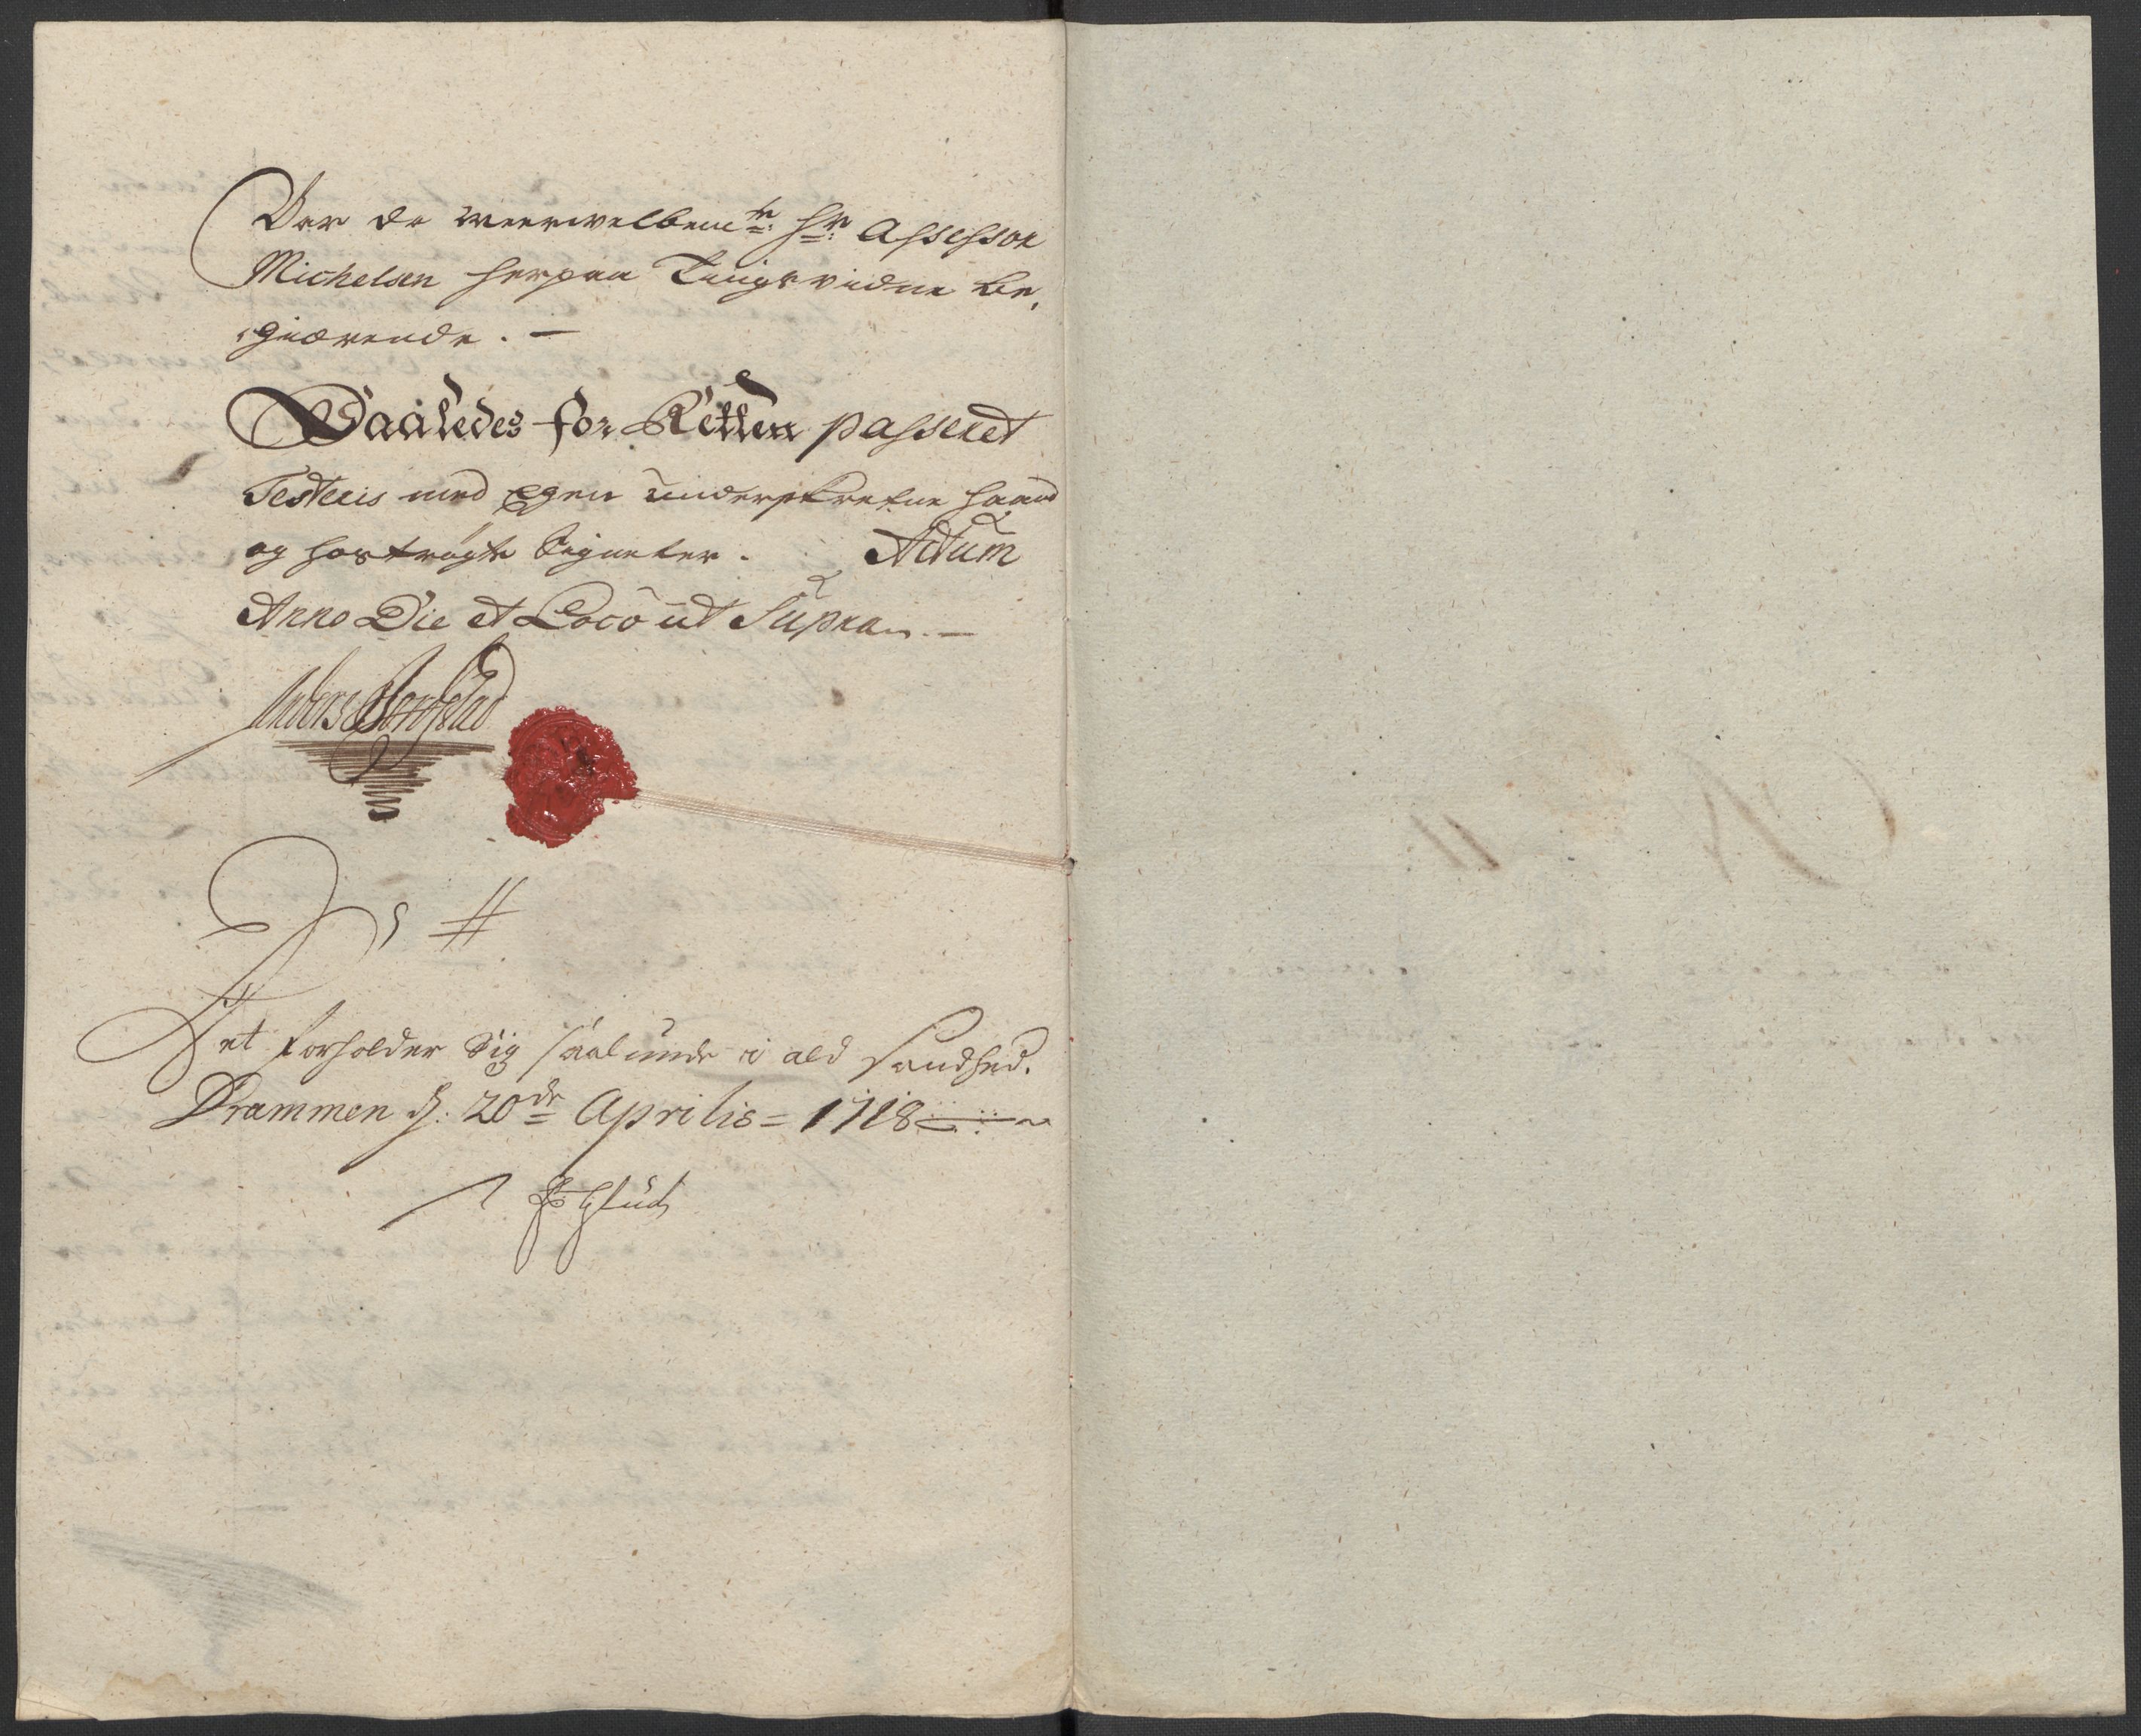 Var da velbemte: Hr: Assessor
Michelsen herpaa Tingsvidne be,
giærende. —
Saaledes for Retten passeret
Testeris med Egen underskrefne haand
og hoströgte Signeter. Actum
Anno Die et Loco ut Supra. —
Anders
Det forholder Sig saalunde i ald Sandhed.
Drammen d: 20de Aprilis = 1718